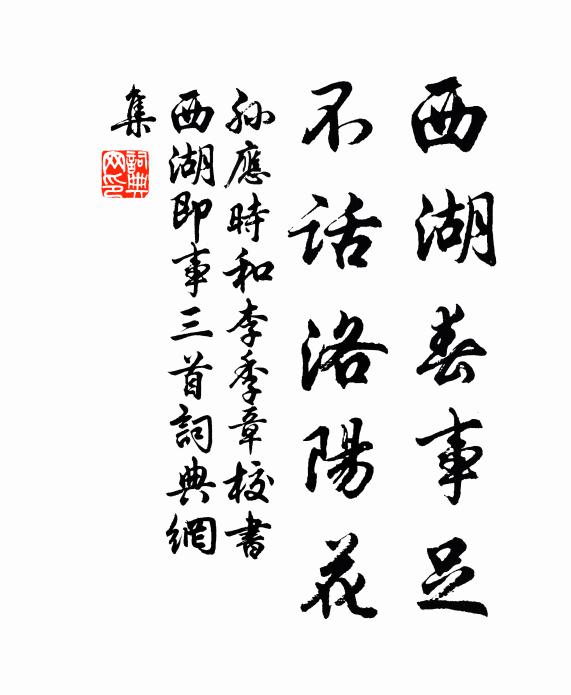 西湖春事足
不話洛陽花
孫應時和李季章校書
西湖即事三首詞典網
集
詞典
网印